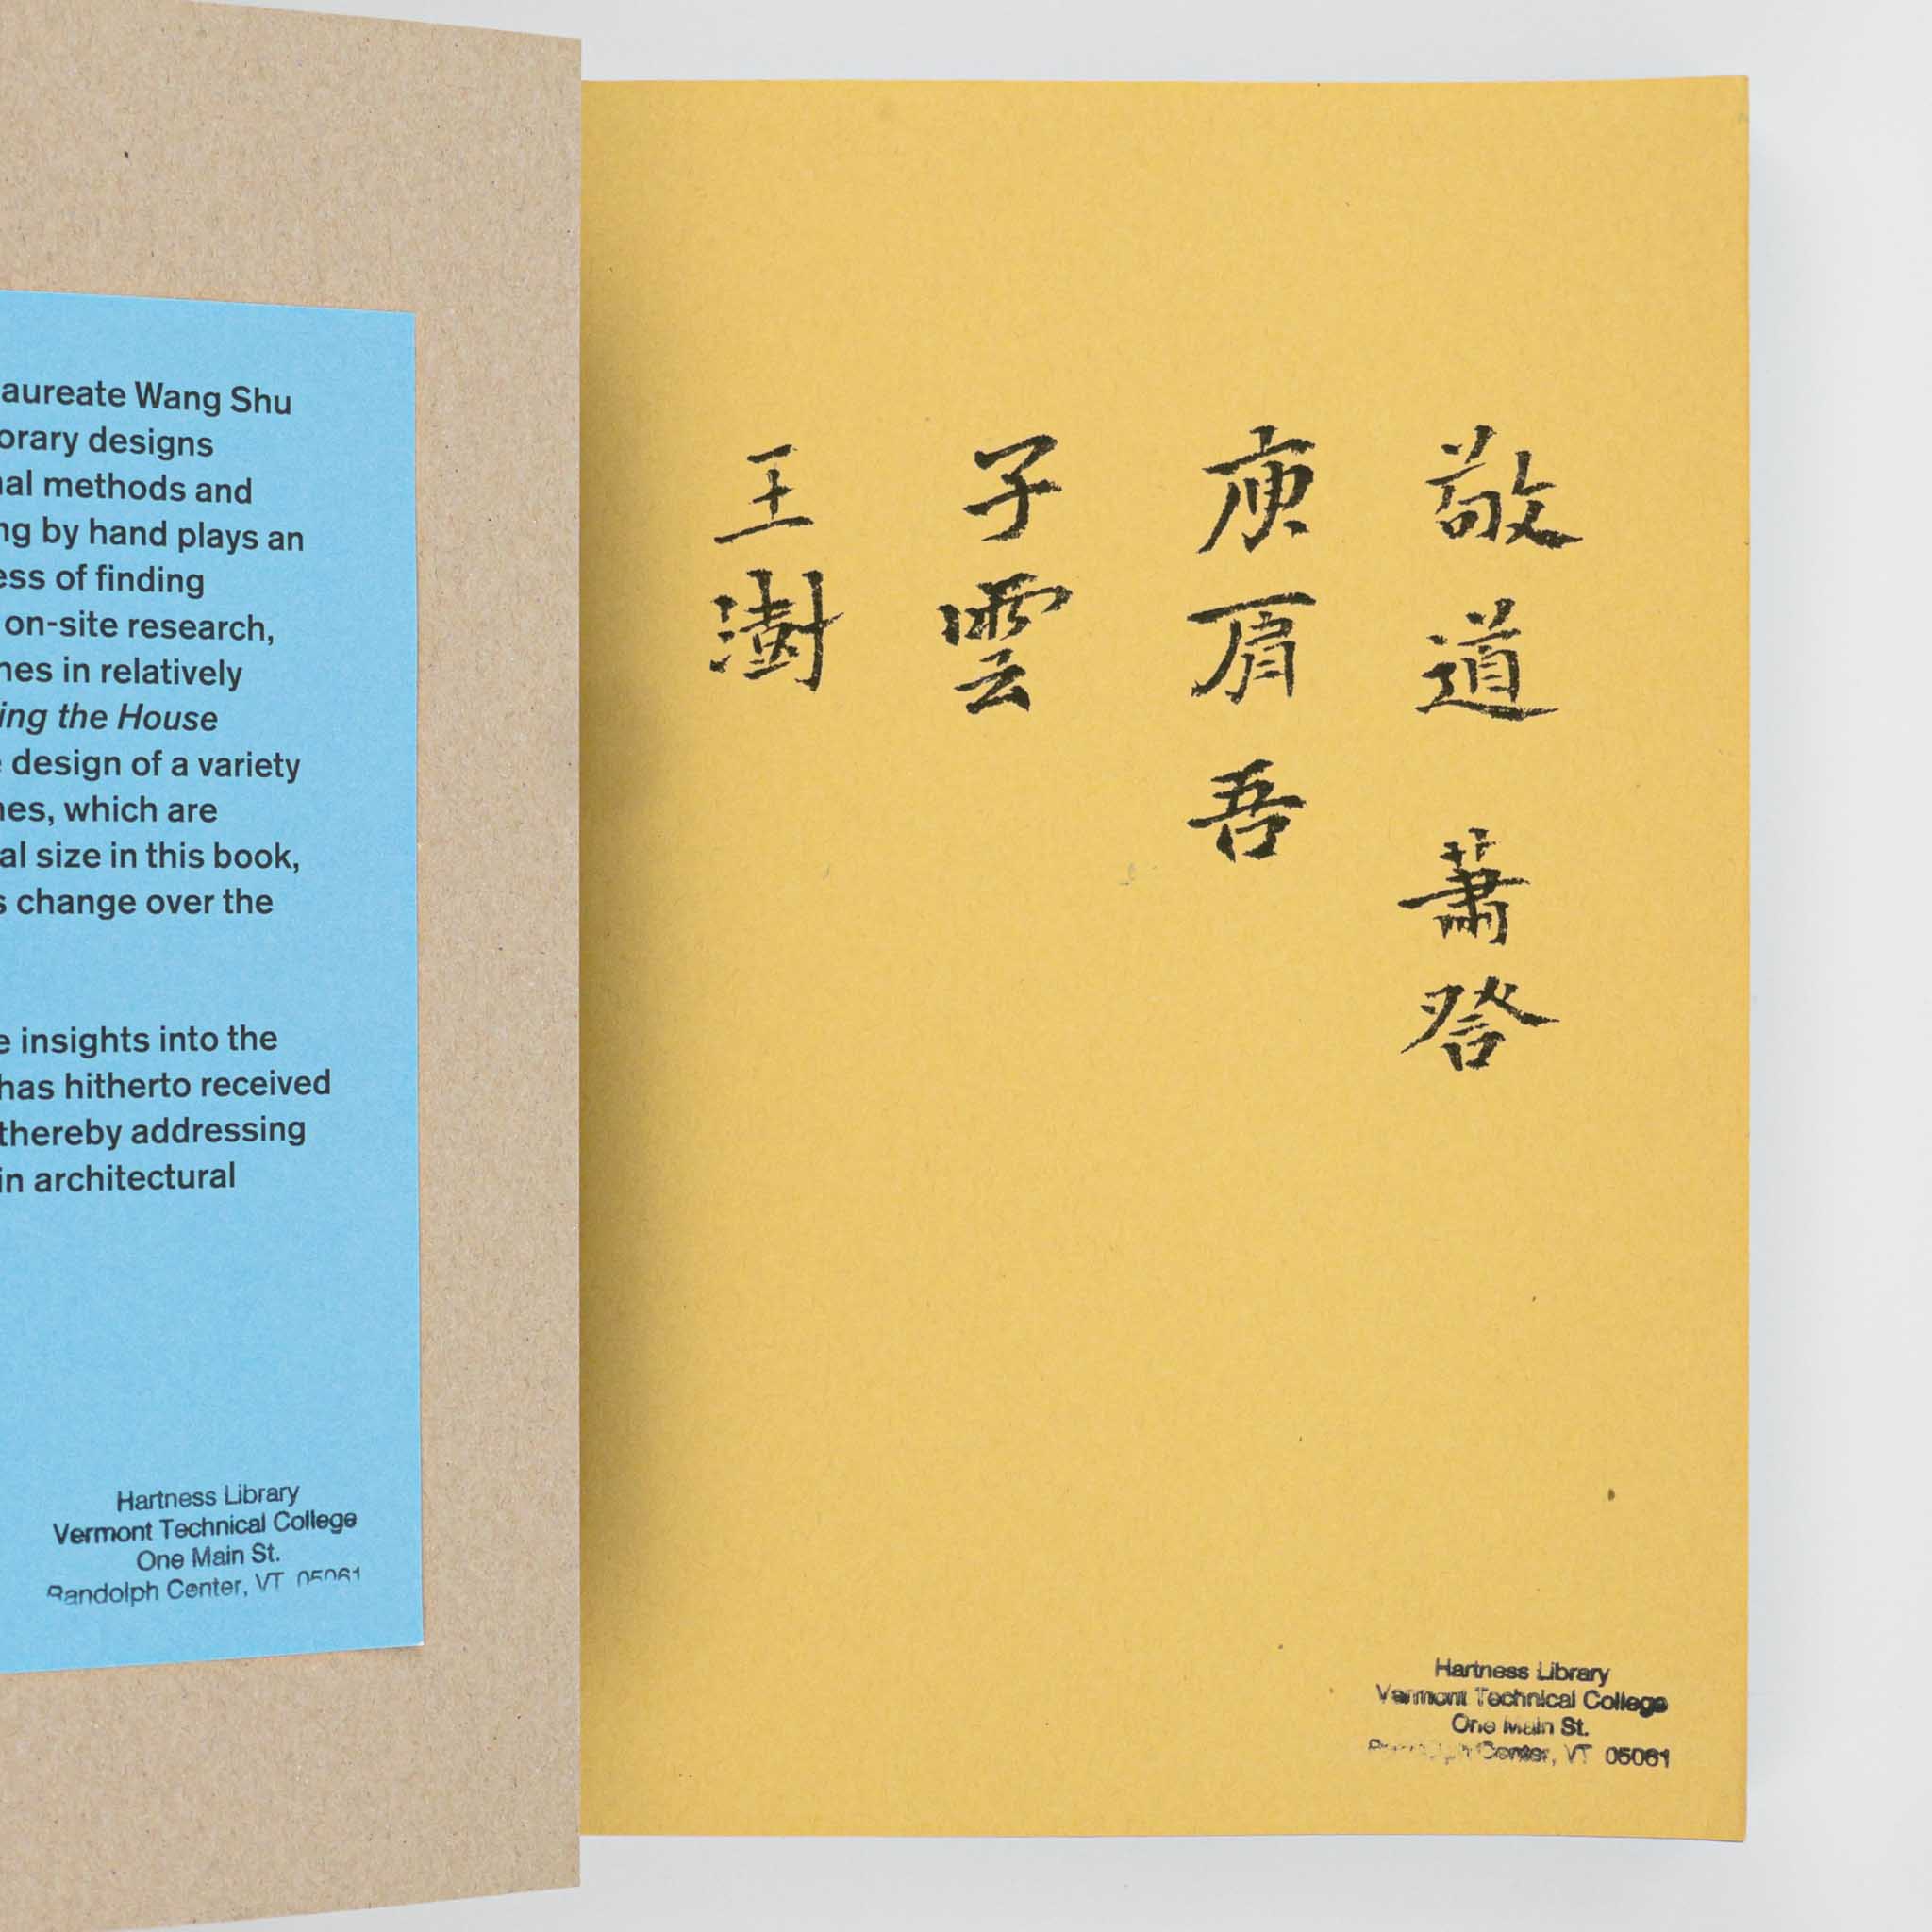 aureate Wang Shu
orary designs
nal methods and
ng by hand plays an
ess of finding
on-site research,
nes in relatively
ing the House
e design of a variety
nes, which are
al size in this book,
s change over the
e insights into the
has hitherto received
thereby addressing
in architectural
Hartness Library
Vermont Technical College
One Main St.
Randolph Center, VT 05061
敬道 蕭詧
庾肩吾
子雲
王澍
Hartness Library
Vermont Technical College
One Main St.
Randolph Center, VT 05061